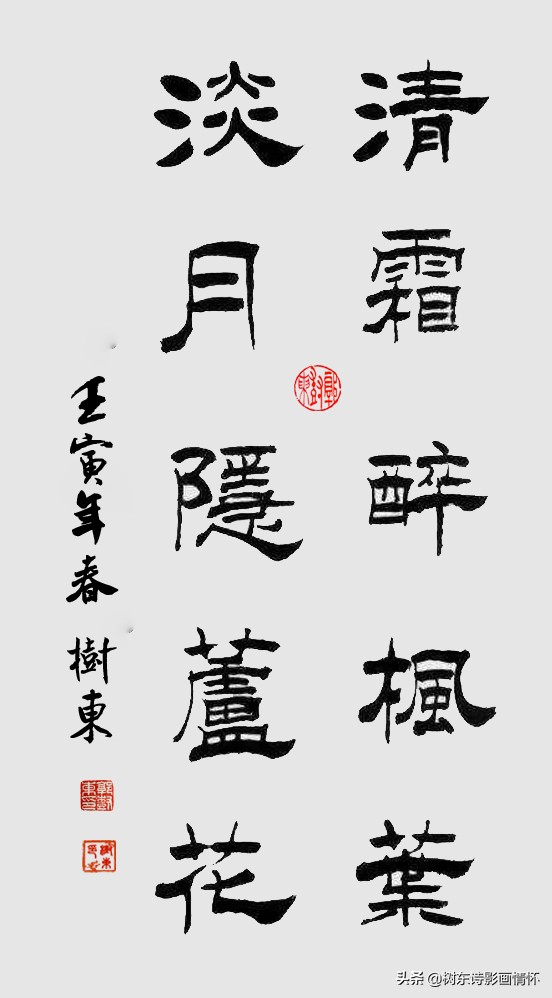 清霜醉楓葉
淡月隱蘆花
壬寅年春 樹東
头条 @树东诗影画情怀